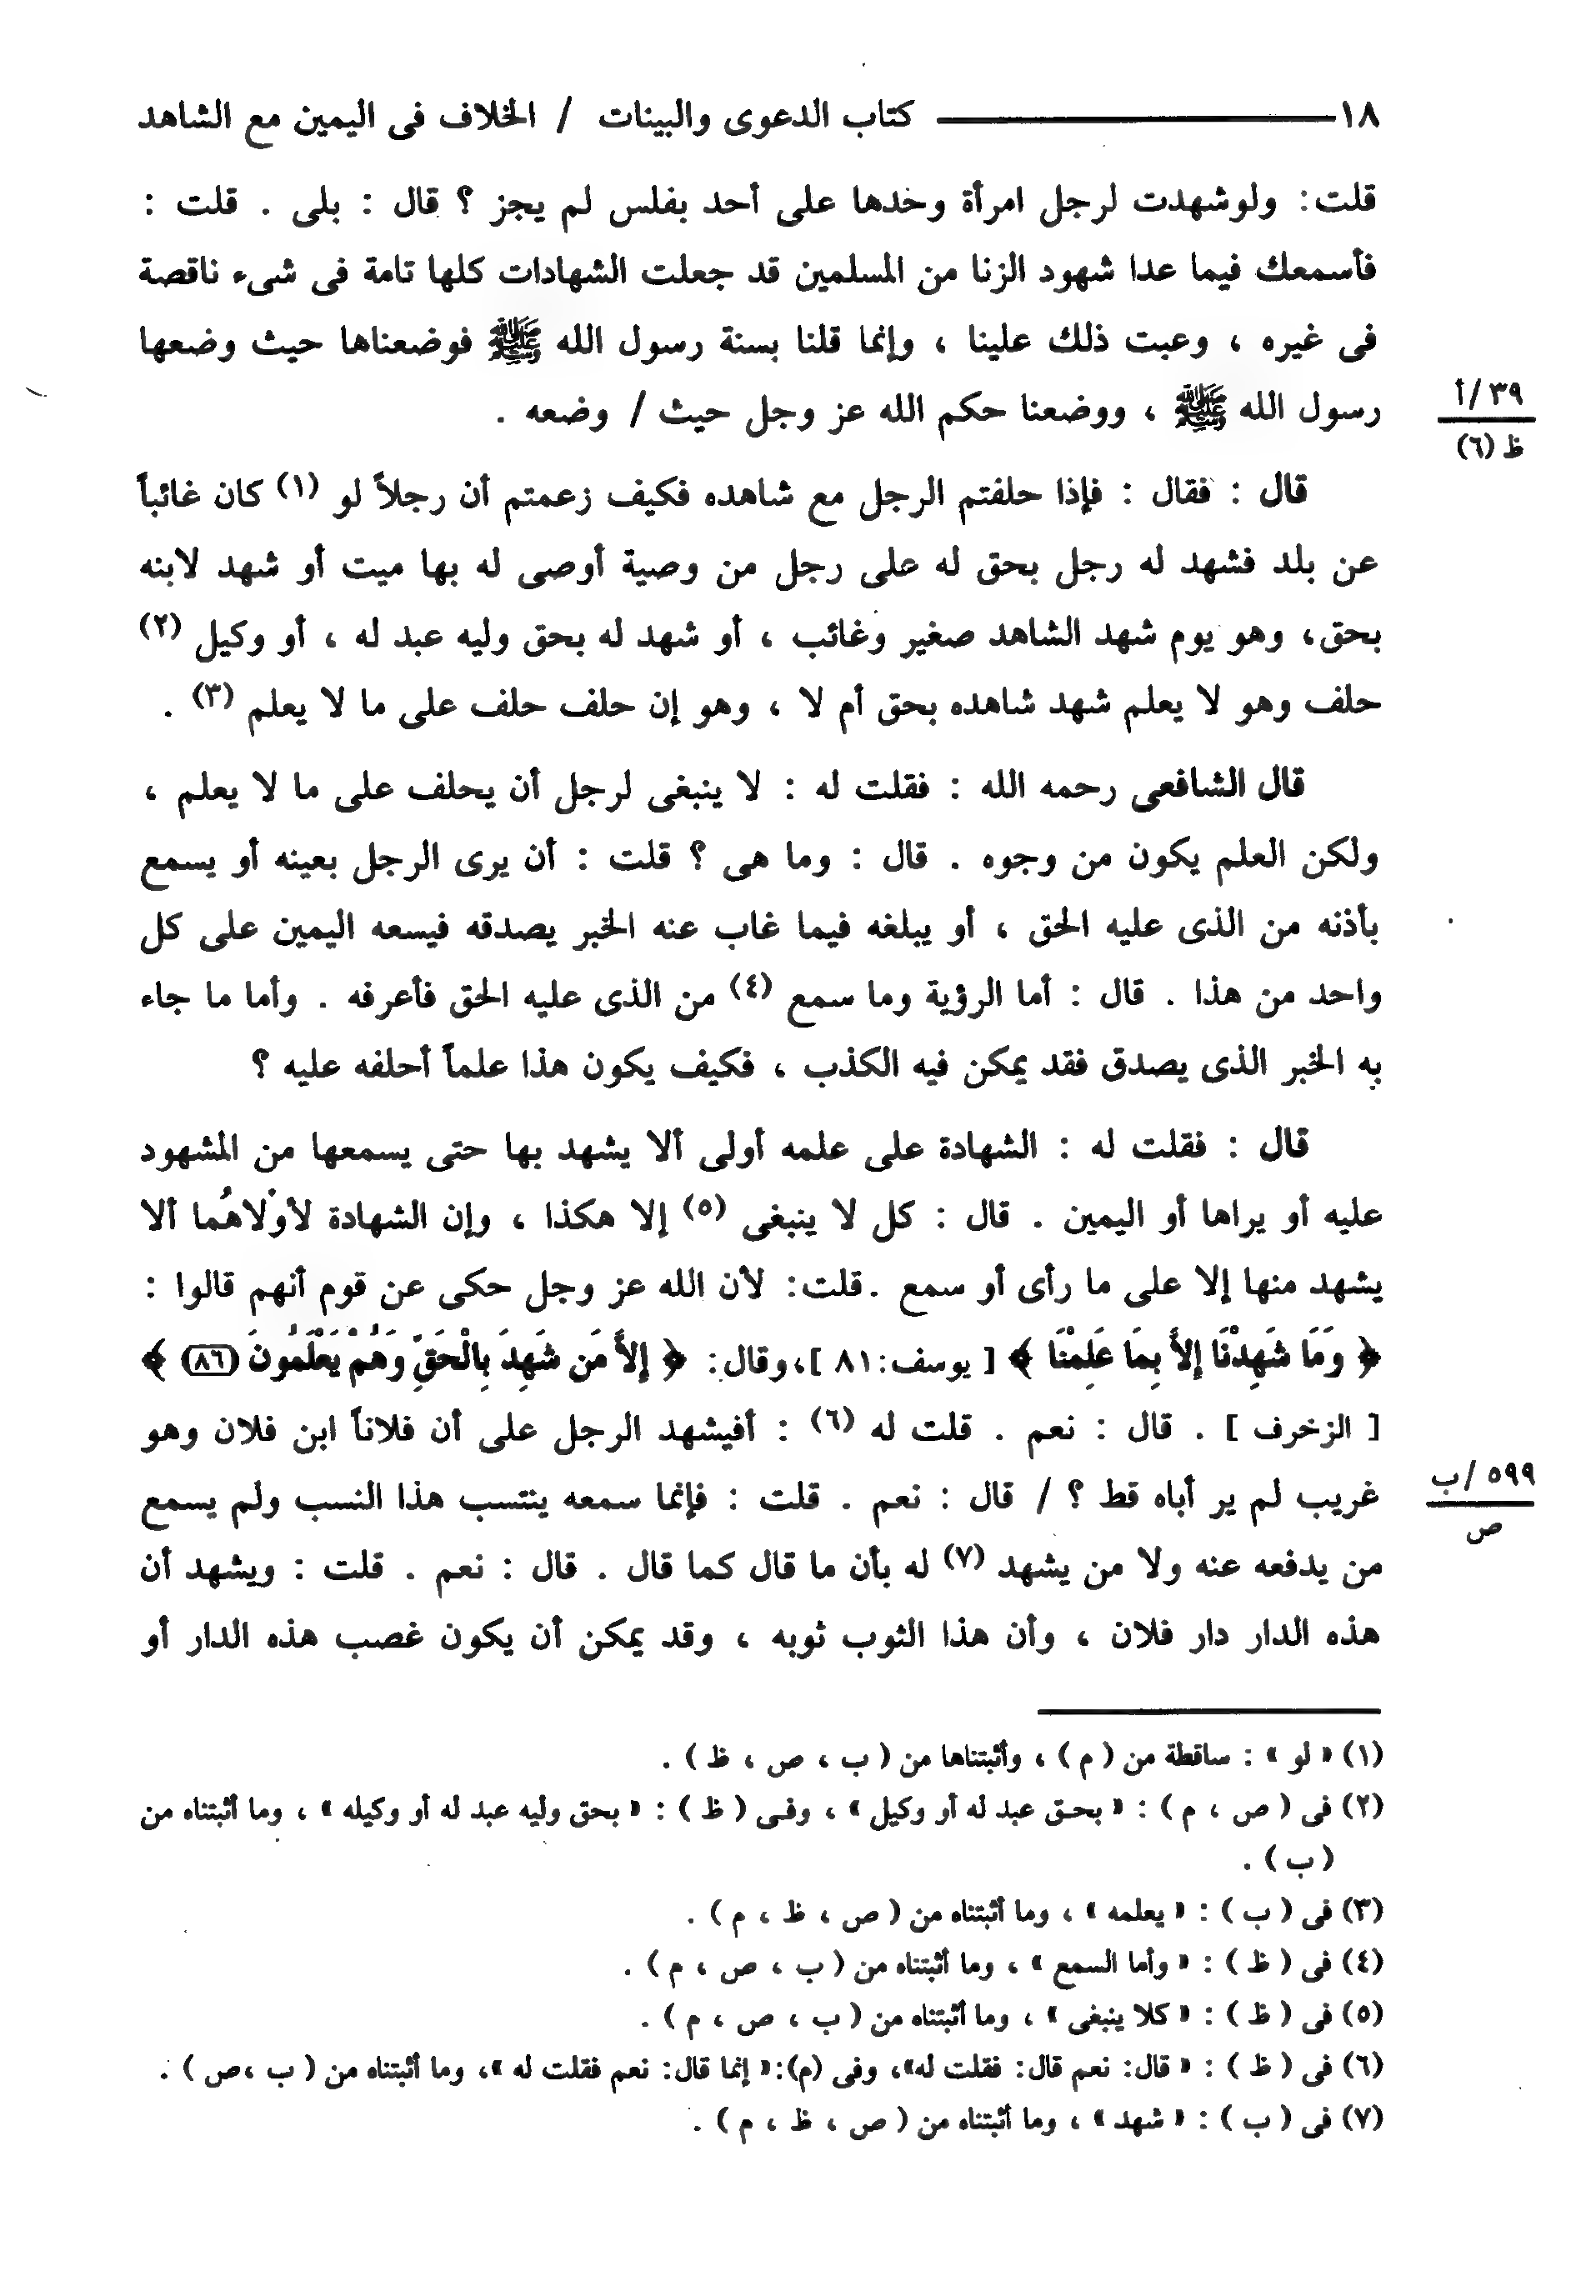 ١٨ ——— كتاب الدعوى والبينات / الخلاف فى اليمين مع الشاهد
قلت: ولوشهدت لرجل امرأة وحدها على أحد بفلس لم يجز ؟ قال : بلى . قلت :
فأسمعك فيما عدا شهود الزنا من المسلمين قد جعلت الشهادات كلها تامة فى شىء ناقصة
فى غيره ، وعبت ذلك علينا ، وإنما قلنا بسنة رسول الله ﷺ فوضعناها حيث وضعها
رسول الله ﷺ ، ووضعنا حكم الله عز وجل حيث / وضعه .
٣٩/أ
ظ (٦)
قال : فقال : فإذا حلفتم الرجل مع شاهده فكيف زعمتم أن رجلاً لو (١) كان غائباً
عن بلد فشهد له رجل بحق له على رجل من وصية أوصى له بها ميت أو شهد لابنه
بحق، وهو يوم شهد الشاهد صغير وغائب ، أو شهد له بحق وليه عبد له ، أو وكيل (٢)
حلف وهو لا يعلم شهد شاهده بحق أم لا ، وهو إن حلف حلف على ما لا يعلم (٣) .
قال الشافعى رحمه الله : فقلت له : لا ينبغى لرجل أن يحلف على ما لا يعلم ،
ولكن العلم يكون من وجوه . قال : وما هى ؟ قلت : أن يرى الرجل بعينه أو يسمع
بأذنه من الذى عليه الحق ، أو يبلغه فيما غاب عنه الخبر يصدقه فيسعه اليمين على كل
واحد من هذا . قال : أما الرؤية وما سمع (٤) من الذى عليه الحق فأعرفه . وأما ما جاء
به الخبر الذى يصدق فقد يمكن فيه الكذب ، فكيف يكون هذا علماً أحلفه عليه ؟
قال : فقلت له : الشهادة على علمه أولى ألا يشهد بها حتى يسمعها من المشهود
عليه أو يراها أو اليمين . قال : كل لا ينبغى (٥) إلا هكذا ، وإن الشهادة لأوْلاهُما ألا
يشهد منها إلا على ما رأى أو سمع .قلت: لأن الله عز وجل حكى عن قوم أنهم قالوا :
﴿ وَمَا شَهِدْنَا إِلاَّ بِمَا عَلِمْنَا ﴾ [ يوسف: ٨١ ]، وقال: ﴿ إِلاَّ مَن شَهِدَ بِالْحَقِّ وَهُمْ يَعْلَمُونَ (٨٦) ﴾
[ الزخرف ] . قال : نعم . قلت له (٦) : أفيشهد الرجل على أن فلاناً ابن فلان وهو
غريب لم ير أباه قط ؟ / قال : نعم . قلت : فإنما سمعه ينتسب هذا النسب ولم يسمع
٥٩٩/ب
ص
من يدفعه عنه ولا من يشهد (٧) له بأن ما قال كما قال . قال : نعم . قلت : ويشهد أن
هذه الدار دار فلان ، وأن هذا الثوب ثوبه ، وقد يمكن أن يكون غصب هذه الدار أو
(١) « لو » : ساقطة من ( م ) ، وأثبتناها من ( ب ، ص ، ظ ) .
(٢) فى ( ص ، م ) : « بحق عبد له أو وكيل » ، وفى ( ظ ) : « بحق وليه عبد له أو وكيله » ، وما أثبتناه من
( ب ) .
(٣) فى ( ب ) : « يعلمه » ، وما أثبتناه من ( ص ، ظ ، م ) .
(٤) فى ( ظ ) : « وأما السمع » ، وما أثبتناه من ( ب ، ص ، م ) .
(٥) فى ( ظ ) : « كلا ينبغى » ، وما أثبتناه من ( ب ، ص ، م ) .
(٦) فى ( ظ ) : « قال: نعم قال: فقلت له»، وفى (م):« إنما قال: نعم فقلت له »، وما أثبتناه من ( ب ،ص ) .
(٧) فى ( ب ) : « شهد » ، وما أثبتناه من ( ص ، ظ ، م ) .